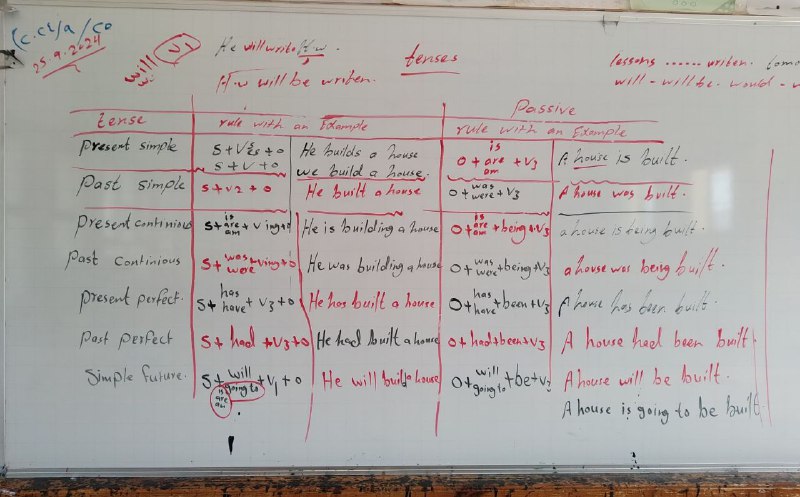 25.9.2024
will V1
He will write H.w.
tenses
lessons ...... written.
H.w will be writen.
will - will be. would -
Passive
tense rule with an Example rule with an Example
Present simple S + V s/es + o He builds a house O + is/are/am + V3 A house is built.
S + V + o we build a house.
Past simple S + V2 + o He built a house O + was/were + V3 A house was built.
Present continious S + is/are/am + Ving + o He is building a house O + is/are/am + being + V3 a house is being built.
Past Continious S + was/were + Ving + o He was building a house O + was/were + being + V3 a house was being built.
Present perfect. S + has/have + V3 + o He has built a house O + has/have + been + V3 A house has been built.
Past perfect S + had + V3 + o He had built a house O + had + been + V3 A house had been built
Simple future. S + will/going to + V1 + o He will build a house O + will/going to + be + V3 A house will be built.
is/are/am A house is going to be built